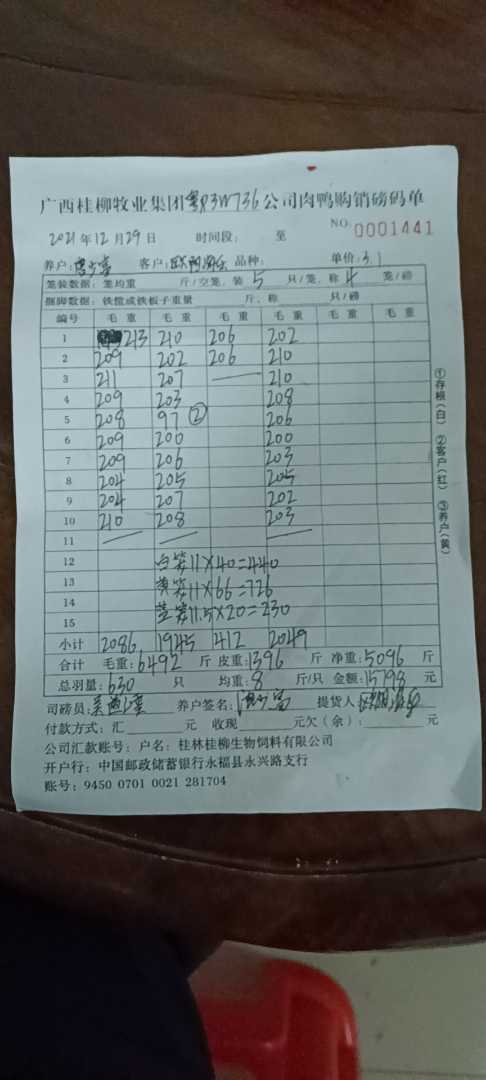 广西桂柳牧业集团粤R3W736公司肉鸭购销磅码单
NO 0001441
2021年12月29日 时间段: 至
养户: 客户: 品种: 单价:3.1
笼装数据: 笼均重 斤/空笼, 装 5 只/笼, 称 4 笼/磅
捆脚数据: 铁筐或铁板子重量 斤, 称 只/磅
编号 毛重 毛重 毛重 毛重 毛重 毛重
1 213 210 206 202
2 209 202 206 210
3 211 207 210
4 209 203 208
5 208 97 ② 206
6 209 200 200
7 209 206 203
8 204 205 205
9 204 207 202
10 210 208 203
11
12 白笼11×40=440
13 黄笼11×66=726
14 蓝笼11.5×20=230
15
小计 2086 1945 412 2049
合计 毛重:6492 斤 皮重:1396 斤 净重:5096 斤
总羽量:630 只 均重:8 斤/只 金额:15798 元
司磅员: 养户签名: 提货人:
付款方式: 汇 元 收现 元欠(余): 元
公司汇款账号: 户名: 桂林桂柳生物饲料有限公司
开户行: 中国邮政储蓄银行永福县永兴路支行
账号: 9450 0701 0021 281704
①存根(白) ②客户(红) ③养户(黄)